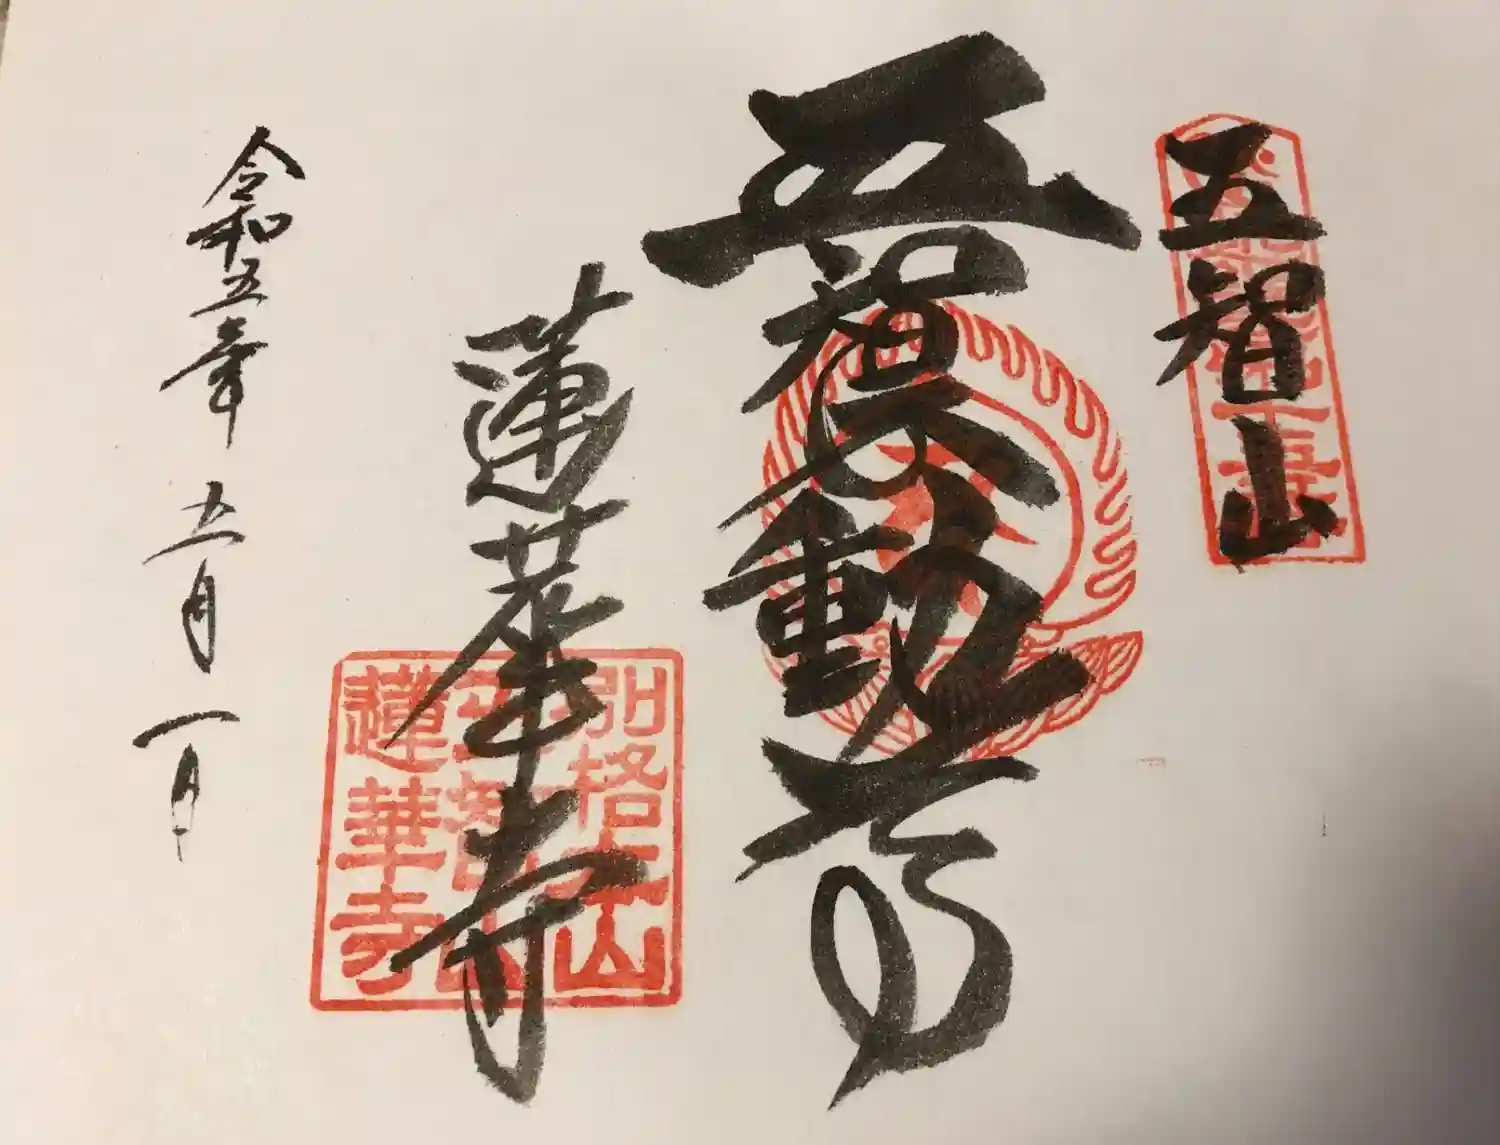 五智山
五智不動尊
蓮華寺
令和五年五月一日
別格本山
五智山
蓮華寺